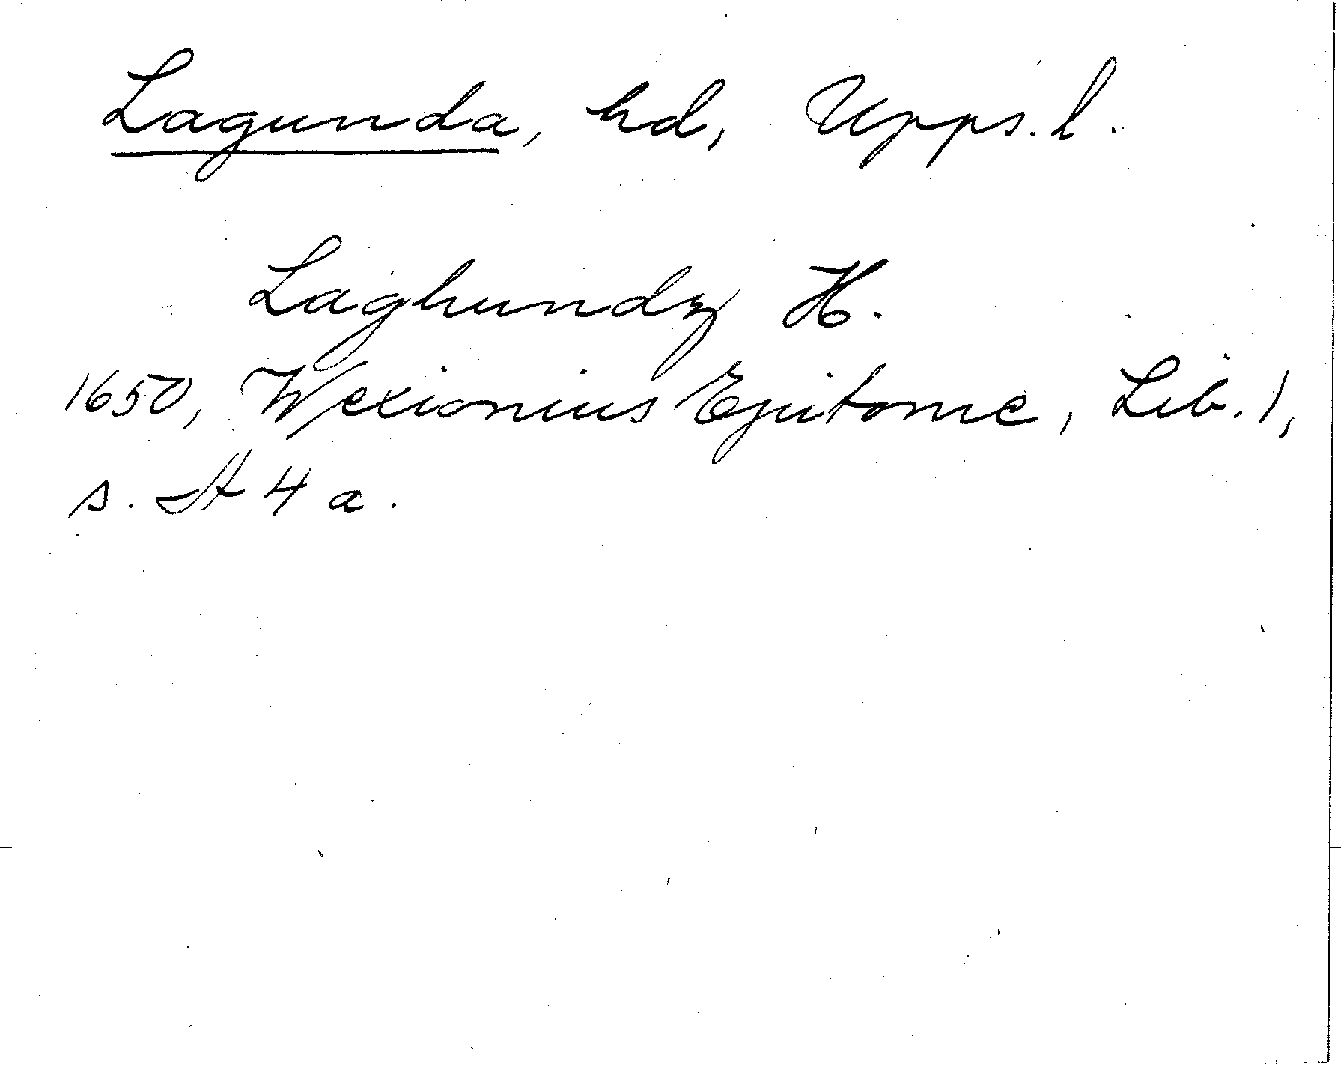 Lagunda, hd, Upps. l.
Laghundz H.
1650, Wexionius Epitome, Lib. 1,
s. A 4 a.